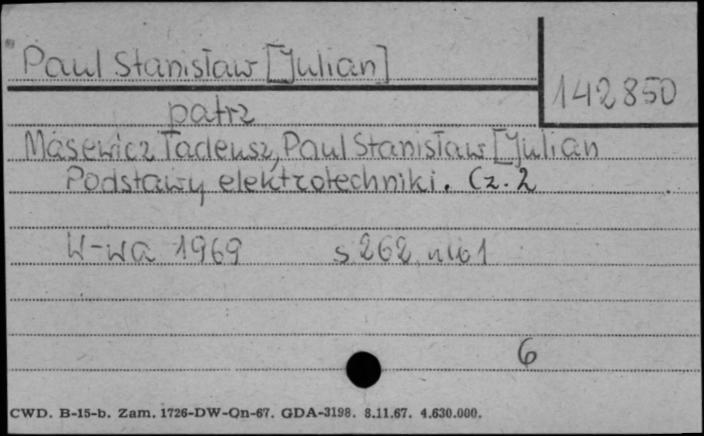 Paul Stanisław [Julian]
142850
patrz
Masewicz Tadeusz, Paul Stanisław [Julian
Podstawy elektrotechniki. Cz. 2
W-wa 1969 s 262, nlb 1
6
CWD. B-15-b. Zam. 1726-DW-Qn-67. GDA-3198. 8.11.67. 4.630.000.